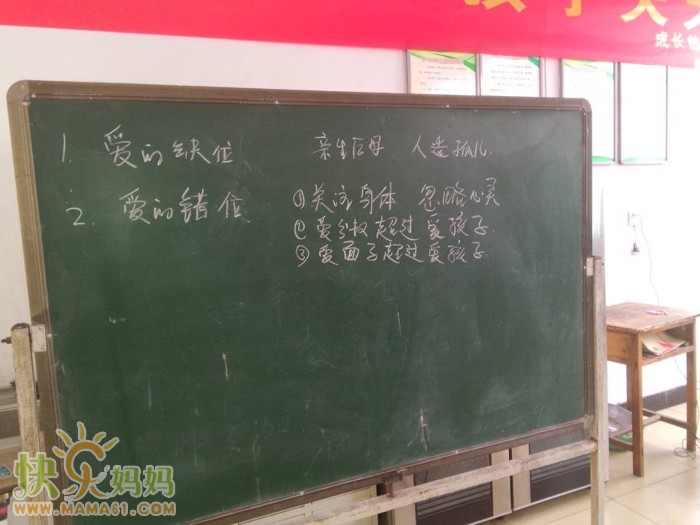 成长
1. 爱的缺位 亲生后母 人造孤儿.
2. 爱的错位 ①关注身体 忽略心灵
②爱分数超过爱孩子.
③爱面子超过爱孩子.
快乐妈妈
WWW.MAMA61.COM